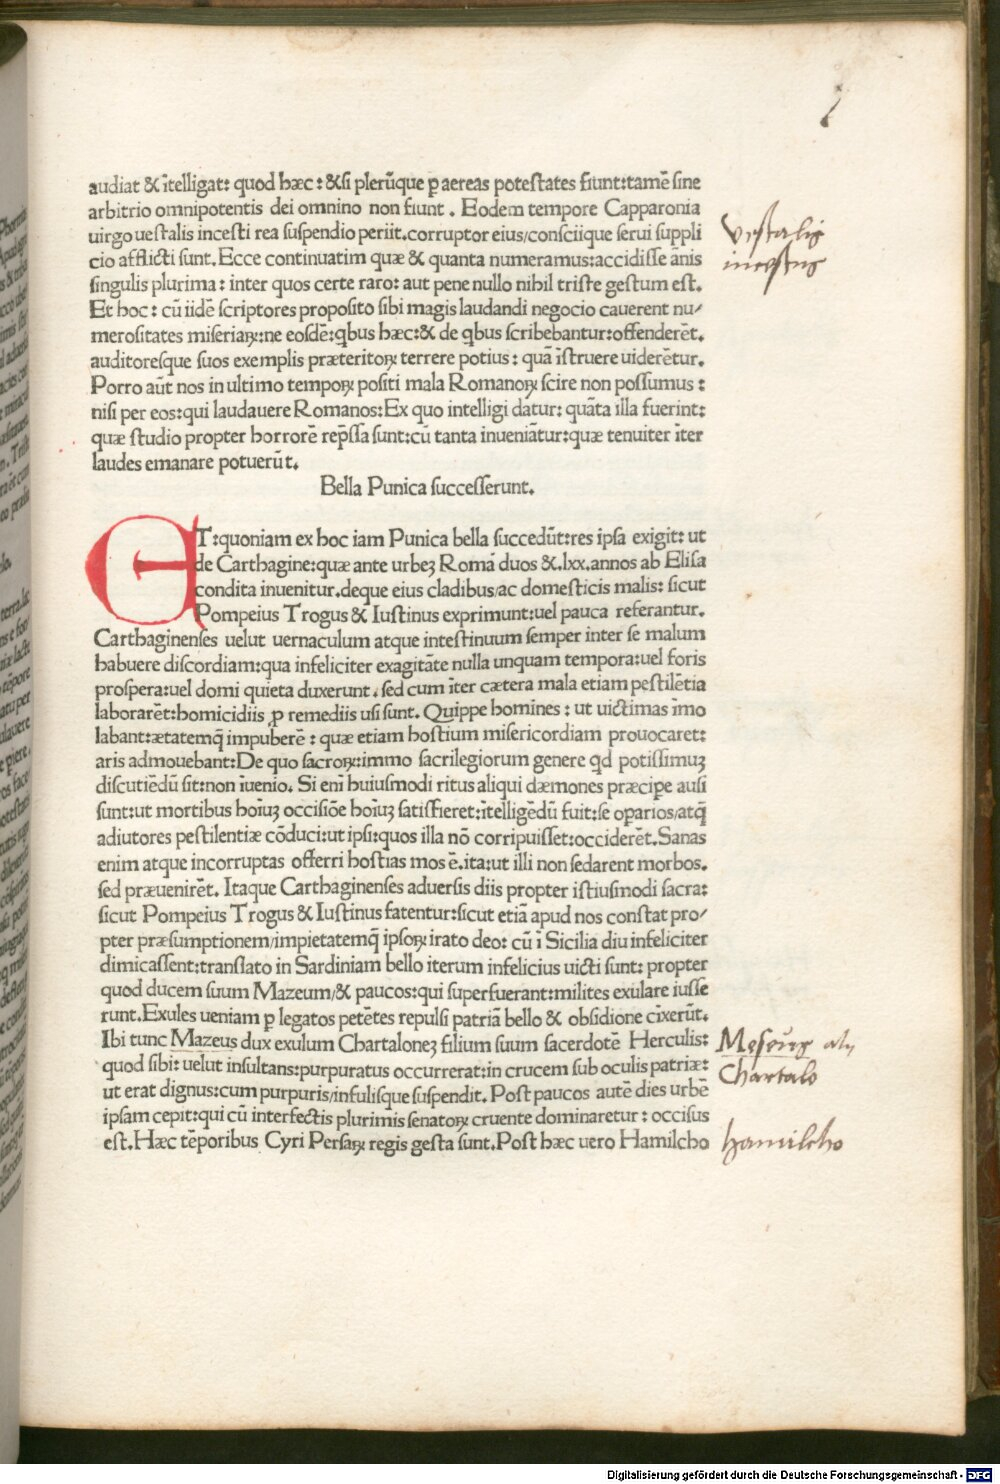 audiat & ītelligat: quod hæc: & si plerūque ꝑ aereas potestates fiunt: tamē sine
arbitrio omnipotentis dei omnino non fiunt. Eodem tempore Capparonia
uirgo uestalis incesti rea suspendio periit. corruptor eius/ consciique serui suppli
cio afflicti sunt. Ecce continuatim quæ & quanta numeramus: accidisse ānis
singulis plurima: inter quos certe raro: aut pene nullo nihil triste gestum est.
Et hoc: cū iidē scriptores proposito sibi magis laudandi negocio cauerent nu/
merositates miseriaꝝ: ne eosdē: qbus hæc: & de qbus scribebantur: offenderēt.
auditoresque suos exemplis præteritoꝝ terrere potius: quā īstruere uiderētur.
Porro aūt nos in ultimo tempoꝝ positi mala Romanoꝝ scire non possumus:
nisi per eos: qui laudauere Romanos: Ex quo intelligi datur: quāta illa fuerint:
quæ studio propter horrorē rep̄ssa sunt: cū tanta inueniātur: quæ tenuiter īter
laudes emanare potuerūt.
Bella Punica successerunt.
ET: quoniam ex hoc iam Punica bella succedūt: res ipsa exigit: ut
de Carthagine: quæ ante urbeꝫ Romā duos &. lxx. annos ab Elisa
condita inuenitur. deque eius cladibus/ ac domesticis malis: sicut
Pompeius Trogus & Iustinus exprimunt: uel pauca referantur.
Carthaginenses uelut uernaculum atque intestinuum semper inter se malum
habuere discordiam: qua infeliciter exagitāte nulla unquam tempora: uel foris
prospera: uel domi quieta duxerunt. sed cum īter cætera mala etiam pestilētia
laborarēt: homicidiis ꝓ remediis usi sunt. Quippe homines: ut uictimas īmo
labant: ætatemq̄ impuberē: quæ etiam hostium misericordiam prouocaret:
aris admouebant: De quo sacroꝝ: immo sacrilegiorum genere qd potissimuꝫ
discutiēdū sit: non īuenio. Si enī huiusmodi ritus aliqui dæmones præcipe ausi
sunt: ut mortibus hoīuꝫ occisiōe hoīuꝫ satisfieret: ītelligēdū fuit: se oparios/ atq̄
adiutores pestilentiæ cōduci: ut ipsi: quos illa nō corripuisset: occiderēt. Sanas
enim atque incorruptas offerri hostias mos ē. ita: ut illi non sedarent morbos.
sed præuenirēt. Itaque Carthaginenses aduersis diis propter istiusmodi sacra:
sicut Pompeius Trogus & Iustinus fatentur: sicut etiā apud nos constat pro/
pter præsumptionem/ impietatemq̄ ipsoꝝ irato deo: cū ī Sicilia diu infeliciter
dimicassent: translato in Sardiniam bello iterum infelicius uicti sunt: propter
quod ducem suum Mazeum/ & paucos: qui superfuerant: milites exulare iusse
runt. Exules ueniam ꝑ legatos petētes repulsi patriā bello & obsidione cīxerūt.
Ibi tunc Mazeus dux exulum Chartaloneꝫ filium suum sacerdotē Herculis:
quod sibi: uelut insultans: purpuratus occurrerat: in crucem sub oculis patriæ:
ut erat dignus: cum purpuris/ infulisque suspendit. Post paucos autē dies urbē
ipsam cepit: qui cū interfectis plurimis senatoꝝ cruente dominaretur: occisus
est. Hæc tēporibus Cyri Persaꝝ regis gesta sunt. Post hæc uero Hamilcho
vestalis
incestus
Meseus
Chartalo
hamilcho
Digitalisierung gefördert durch die Deutsche Forschungsgemeinschaft - DFG